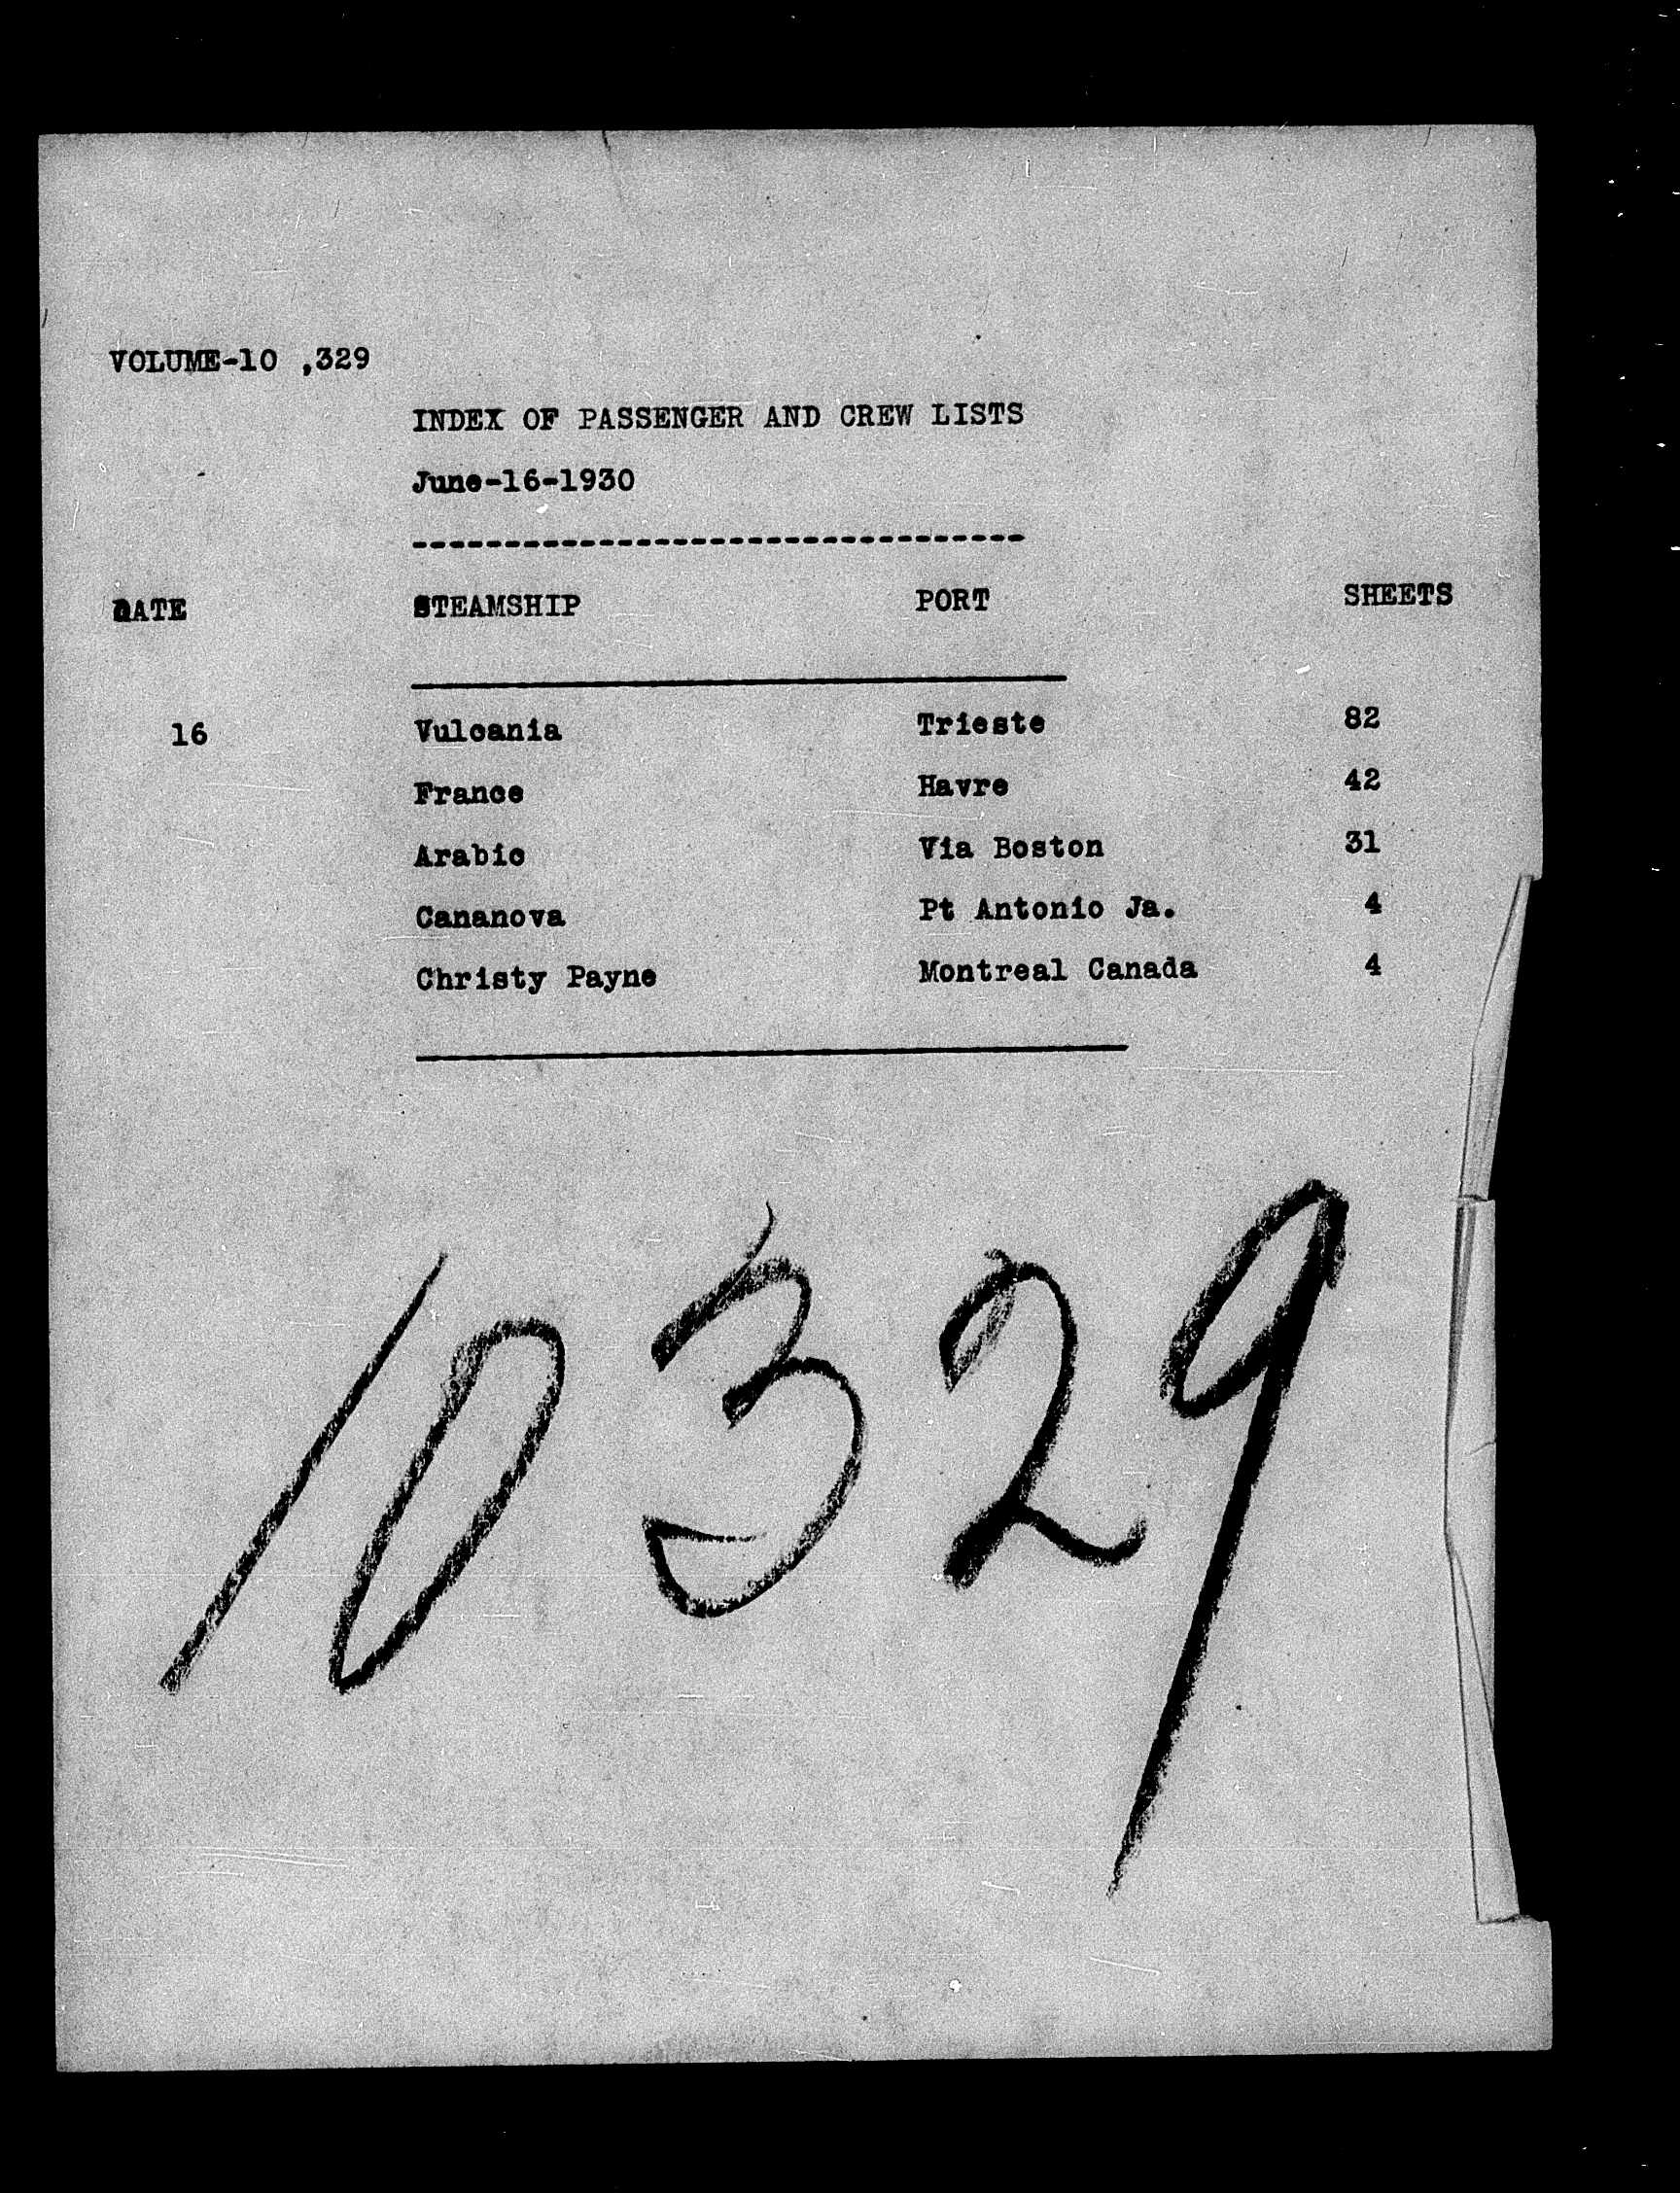 VOLUME-10 ,329
INDEX OF PASSENGER AND CREW LISTS
June-16-1930
---------------------------------
DATE STEAMSHIP PORT SHEETS
16 Vulcania Trieste 82
France Havre 42
Arabic Via Boston 31
Cananova Pt Antonio Ja. 4
Christy Payne Montreal Canada 4
10329